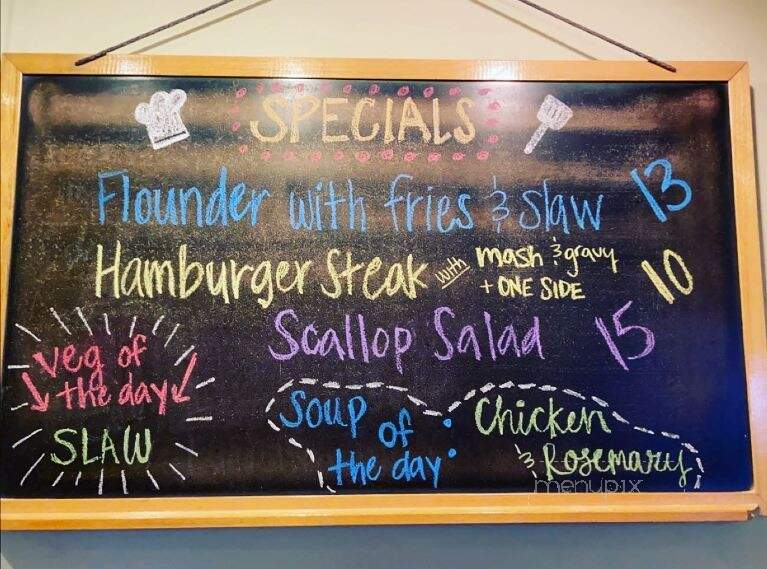 SPECIALS
Flounder with fries & slaw 13
Hamburger Steak with mash & gravy + ONE SIDE 10
Scallop Salad 15
veg of the day
SLAW
Soup of the day:
Chicken & Rosemary
menupix